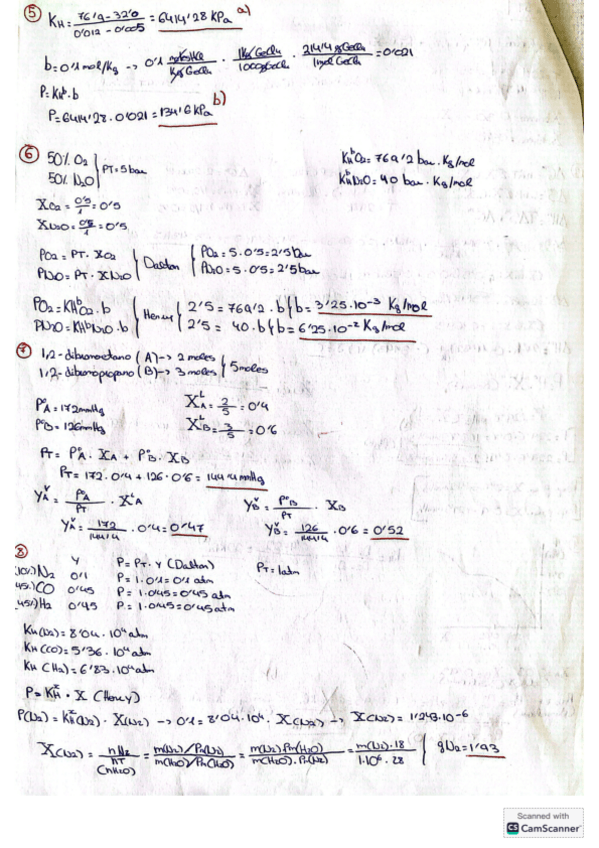 5 KH = 76'9 - 32'0 / 0'012 - 0'005 = 6414'28 KPa a)
b = 0'1 mol/Kg → 0'1 mol HCl / Kg GeCl4 · 1 Kg GeCl4 / 1000 g GeCl4 · 214'4 g GeCl4 / 1 mol GeCl4 = 0'021
P = KH · b
P = 6414'28 · 0'021 = 134'6 KPa b)
6 50% O2
50% N2O
PT = 5 bar
KH^b O2 = 769'2 bar · Kg/mol
KH^b N2O = 40 bar · Kg/mol
XO2 = 0'5 / 1 = 0'5
XN2O = 0'5 / 1 = 0'5
PO2 = PT · XO2
PN2O = PT · XN2O
Dalton
PO2 = 5 · 0'5 = 2'5 bar
PN2O = 5 · 0'5 = 2'5 bar
PO2 = KH^b O2 · b
PN2O = KH^b N2O · b
Henry
2'5 = 769'2 · b b = 3'25 · 10^-3 Kg/mol
2'5 = 40 · b b = 6'25 · 10^-2 Kg/mol
7 1,2-dibromoetano (A) → 2 moles
1,2-dibromopropano (B) → 3 moles
5 moles
P°A = 172 mmHg
P°B = 126 mmHg
X^L A = 2/5 = 0'4
X^L B = 3/5 = 0'6
PT = P°A · XA + P°B · XB
PT = 172 · 0'4 + 126 · 0'6 = 144'4 mmHg
Y^V A = P°A / PT · X^L A
Y^V B = P°B / PT · XB
Y^V A = 172 / 144'4 · 0'4 = 0'47
Y^V B = 126 / 144'4 · 0'6 = 0'52
8 Y
10%) N2 0'1 P = PT · Y (Dalton) PT = 1 atm
P = 1 · 0'1 = 0'1 atm
45%) CO 0'45 P = 1 · 0'45 = 0'45 atm
45%) H2 0'45 P = 1 · 0'45 = 0'45 atm
KH (N2) = 8'04 · 10^4 atm
KH (CO) = 5'36 · 10^4 atm
KH (H2) = 6'83 · 10^4 atm
P = KH^x · X (Henry)
P(N2) = KH^x(N2) · X(N2) → 0'1 = 8'04 · 10^4 · X(N2) → X(N2) = 1'243 · 10^-6
X(N2) = nN2 / nT (nH2O) = m(N2)/Pm(N2) / m(H2O)/Pm(H2O) = m(N2) · Pm(H2O) / m(H2O) · Pm(N2) = m(N2) · 18 / 1 · 10^6 · 28 gN2 = 1'93
Scanned with
CS CamScanner